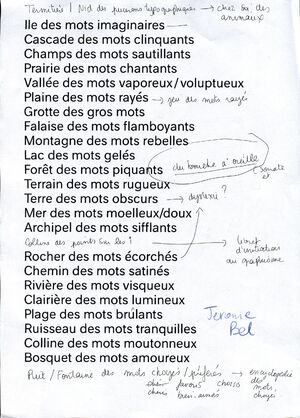 Termitière / Nid des pucerons typographiques → chez soi des animaux
Ile des mots imaginaires
Cascade des mots clinquants
Champs des mots sautillants
Prairie des mots chantants
Vallée des mots vaporeux/voluptueux
Plaine des mots rayés → jeu des mots rayés
Grotte des gros mots
Falaise des mots flamboyants
Montagne des mots rebelles
Lac des mots gelés
du bouche à oreille
Forêt des mots piquants
Terrain des mots rugueux
Terre des mots obscurs → dyslexie ?
Mer des mots moelleux/doux
Archipel des mots sifflants
Colline des points sur les i
livret d'initiation au graphisme
Rocher des mots écorchés
Chemin des mots satinés
Rivière des mots visqueux
Clairière des mots lumineux
Plage des mots brûlants
Jerome Bel
Ruisseau des mots tranquilles
Colline des mots moutonneux
Bosquet des mots amoureux
Puit / Fontaine des mots choyés / préférés → encyclopédie des mots choyés
chéris favoris choisis
chers bien-aimés